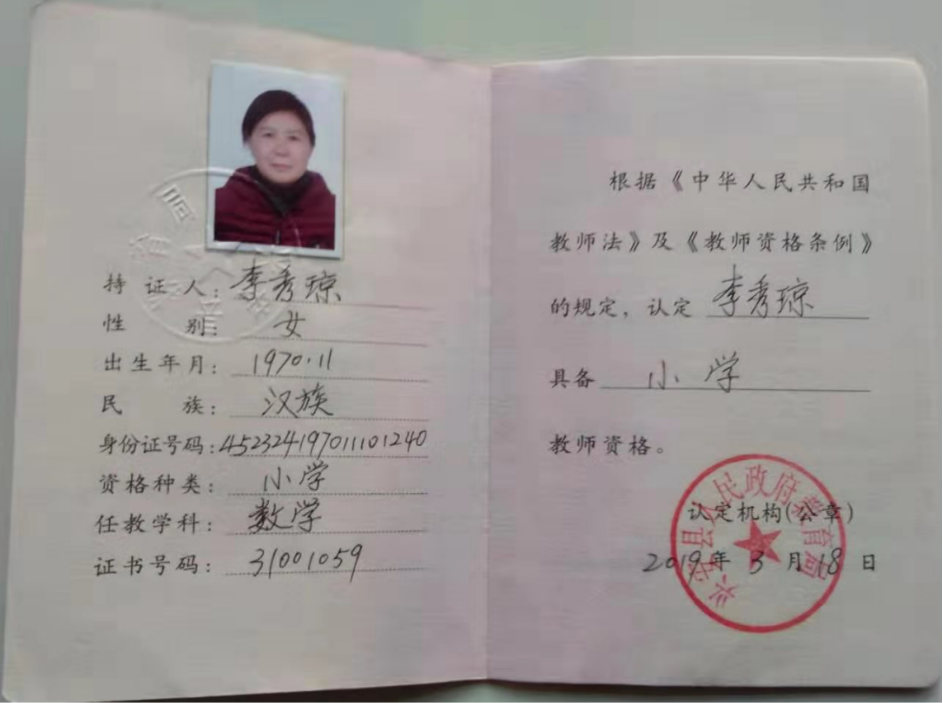 持证人：李秀琼
性别：女
出生年月：1970.11
民族：汉族
身份证号码：452324197011101240
资格种类：小学
任教学科：数学
证书号码：31001059
根据《中华人民共和国
教师法》及《教师资格条例》
的规定，认定 李秀琼
具备 小学
教师资格。
兴安县人民政府教育局
认定机构(公章)
2019年3月18日